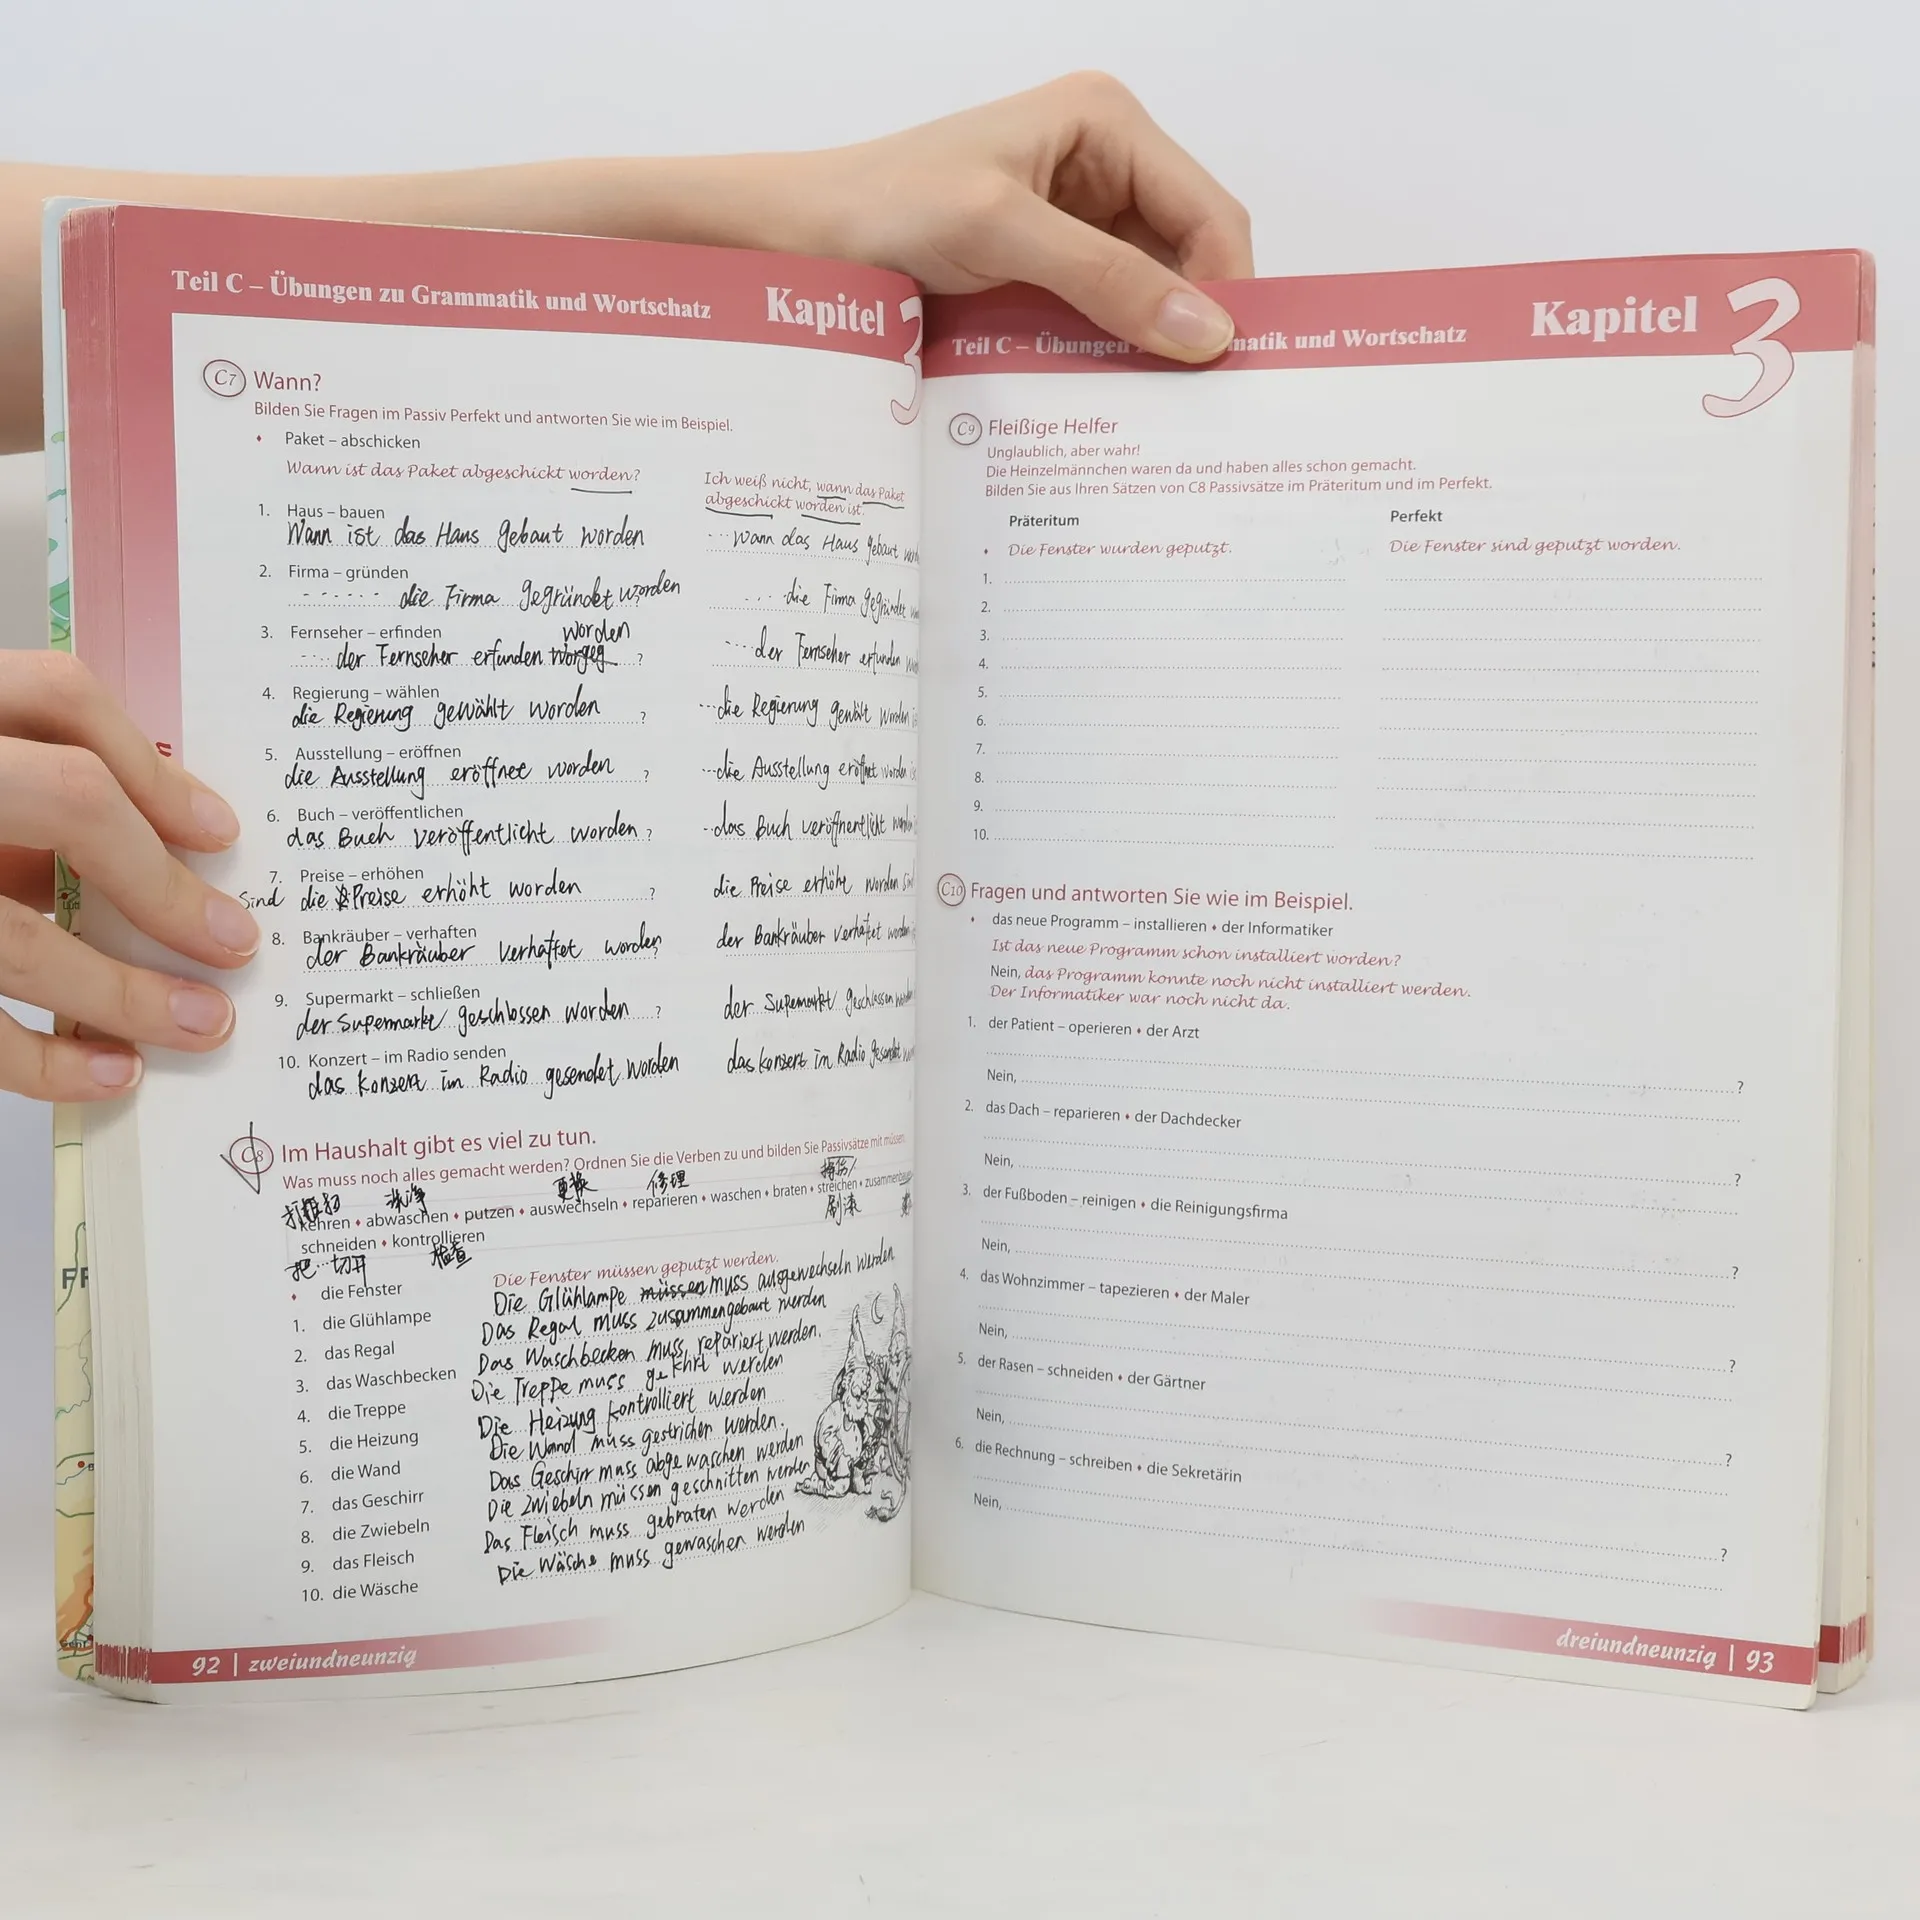 Teil C – Übungen zu Grammatik und Wortschatz
Kapitel 3
C7 Wann?
Bilden Sie Fragen im Passiv Perfekt und antworten Sie wie im Beispiel.
Paket – abschicken
Wann ist das Paket abgeschickt worden?
Ich weiß nicht, wann das Paket
abgeschickt worden ist.
1. Haus – bauen
Wann ist das Haus gebaut worden
... wann das Haus gebaut
2. Firma – gründen
die Firma gegründet worden
die Firma gegründet
3. Fernseher – erfinden
worden
der Fernseher erfunden ?
der Fernseher erfunden
4. Regierung – wählen
die Regierung gewählt worden ?
die Regierung gewählt worden
5. Ausstellung – eröffnen
die Ausstellung eröffnet worden ?
die Ausstellung eröffnet worden
6. Buch – veröffentlichen
das Buch veröffentlicht worden ?
das Buch
7. Preise – erhöhen
Sind die Preise erhöht worden ?
die Preise erhöht worden sind
8. Bankräuber – verhaften
der Bankräuber verhaftet worden
der Bankräuber verhaftet worden
9. Supermarkt – schließen
der Supermarkt geschlossen worden ?
der Supemarkt geschlossen
10. Konzert – im Radio senden
das Konzert im Radio gesendet worden
das Konzert im Radio gesendet
C8 Im Haushalt gibt es viel zu tun.
Was muss noch alles gemacht werden? Ordnen Sie die Verben zu und bilden Sie Passivsätze mit müssen.
洗净 更换 修理
kehren • abwaschen • putzen • auswechseln • reparieren • waschen • braten • streichen •
刷漆
schneiden • kontrollieren
把...切开 检查
die Fenster
Die Fenster müssen geputzt werden.
1. die Glühlampe
Die Glühlampe müssen muss ausgewechseln werden
2. das Regal
Das Regal muss zusammengebaut werden
3. das Waschbecken
Das Waschbecken muss repariert werden.
4. die Treppe
Die Treppe muss gekhrt werden
5. die Heizung
Die Heizung kontrolliert werden
6. die Wand
Die Wand muss gestrichen werden.
7. das Geschirr
Das Geschirr muss abgewaschen werden
8. die Zwiebeln
Die Zwiebeln müssen geschnitten werden
9. das Fleisch
Das Fleisch muss gebraten werden
10. die Wäsche
Die Wäsche muss gewaschen werden
92 | zweiundneunzig
Teil C – Übungen und Wortschatz
Kapitel 3
C9 Fleißige Helfer
Unglaublich, aber wahr!
Die Heinzelmännchen waren da und haben alles schon gemacht.
Bilden Sie aus Ihren Sätzen von C8 Passivsätze im Präteritum und im Perfekt.
Präteritum Perfekt
Die Fenster wurden geputzt. Die Fenster sind geputzt worden.
1.
2.
3.
4.
5.
6.
7.
8.
9.
10.
C10 Fragen und antworten Sie wie im Beispiel.
das neue Programm – installieren • der Informatiker
Ist das neue Programm schon installiert worden?
Nein, das Programm konnte noch nicht installiert werden.
Der Informatiker war noch nicht da.
1. der Patient – operieren • der Arzt
?
Nein,
2. das Dach – reparieren • der Dachdecker
?
Nein,
3. der Fußboden – reinigen • die Reinigungsfirma
?
Nein,
4. das Wohnzimmer – tapezieren • der Maler
?
Nein,
5. der Rasen – schneiden • der Gärtner
?
Nein,
6. die Rechnung – schreiben • die Sekretärin
?
Nein,
dreiundneunzig | 93